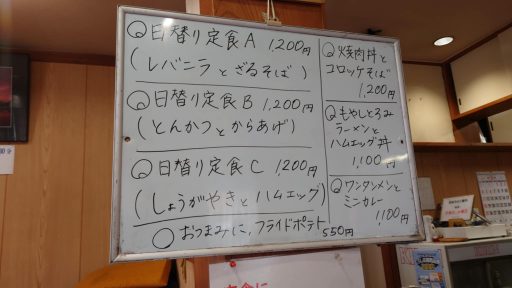 日替り定食A 1,200円
(レバニラとざるそば)
日替り定食B 1,200円
(とんかつとからあげ)
日替り定食C 1,200円
(しょうがやきとハムエッグ)
おつまみに、フライドポテト 550円
焼肉丼と
コロッケそば
1,200円
もやしとろみ
ラーメンと
ハムエッグ丼
1,100円
ワンタンメンと
ミニカレー
1100円